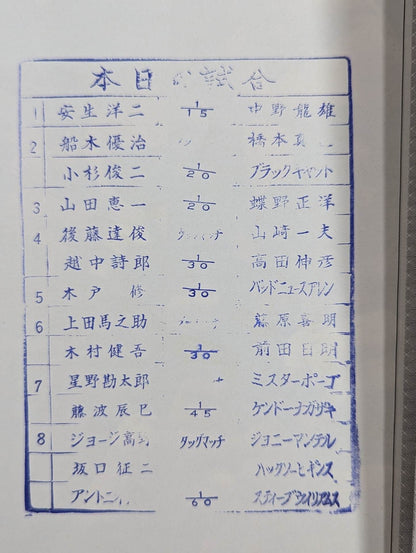 本日の試合
1 安生洋二 1/15 中野龍雄
2 船木優治 橋本真
小杉俊二 1/20 ブラックキャット
3 山田恵一 1/20 蝶野正洋
4 後藤達俊 タッグマッチ 山崎一夫
越中詩郎 1/30 高田伸彦
5 木戸修 1/30 バッドニュースアレン
6 上田馬之助 藤原喜明
木村健吾 1/30 前田日明
7 星野勘太郎 ミスターポーゴ
藤波辰巳 1/45 ケンドーナガサキ
8 ジョージ高 タッグマッチ ジョニーマンテル
坂口征二 ハクソーヒギンス
アントニ 1/60 スティーブウイリアムス